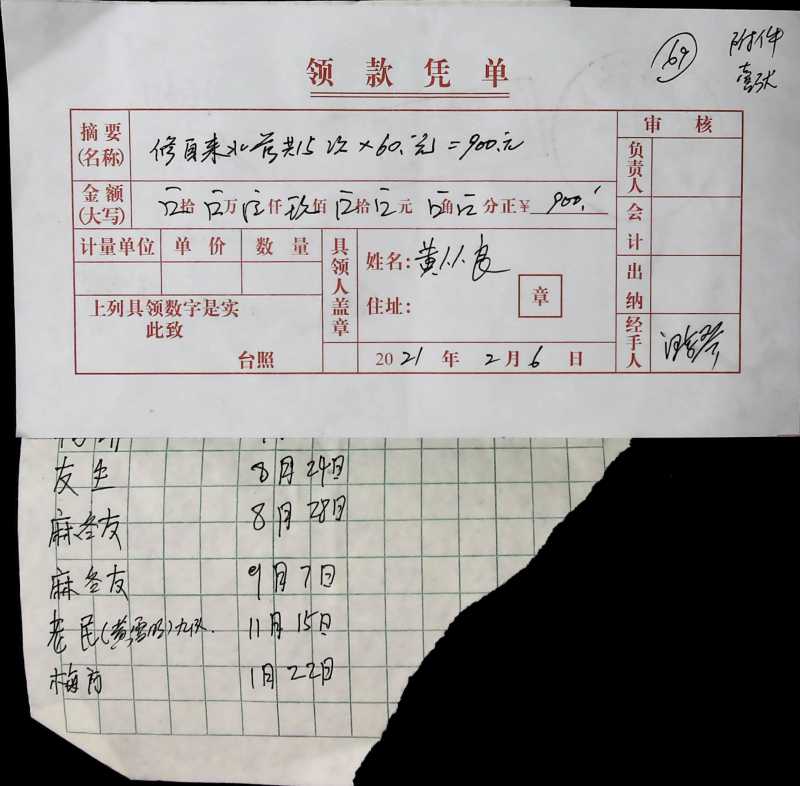 69
附件
壹张
领款凭单
摘要(名称) 修自来水管共15次×60.元=900.元
审核
负责人
金额(大写) 拾 万 仟 玖佰 拾 元 角 分正¥ 900.
会计
计量单位 单价 数量
具领人盖章
姓名: 黄从良
住址:
章
出纳
上列具领数字是实
此致
台照
2021年2月6日
经手人
友生 8月24日
麻冬友 8月28日
麻冬友 9月7日
老民(黄雪明)九队. 11月15日
梅 1月22日